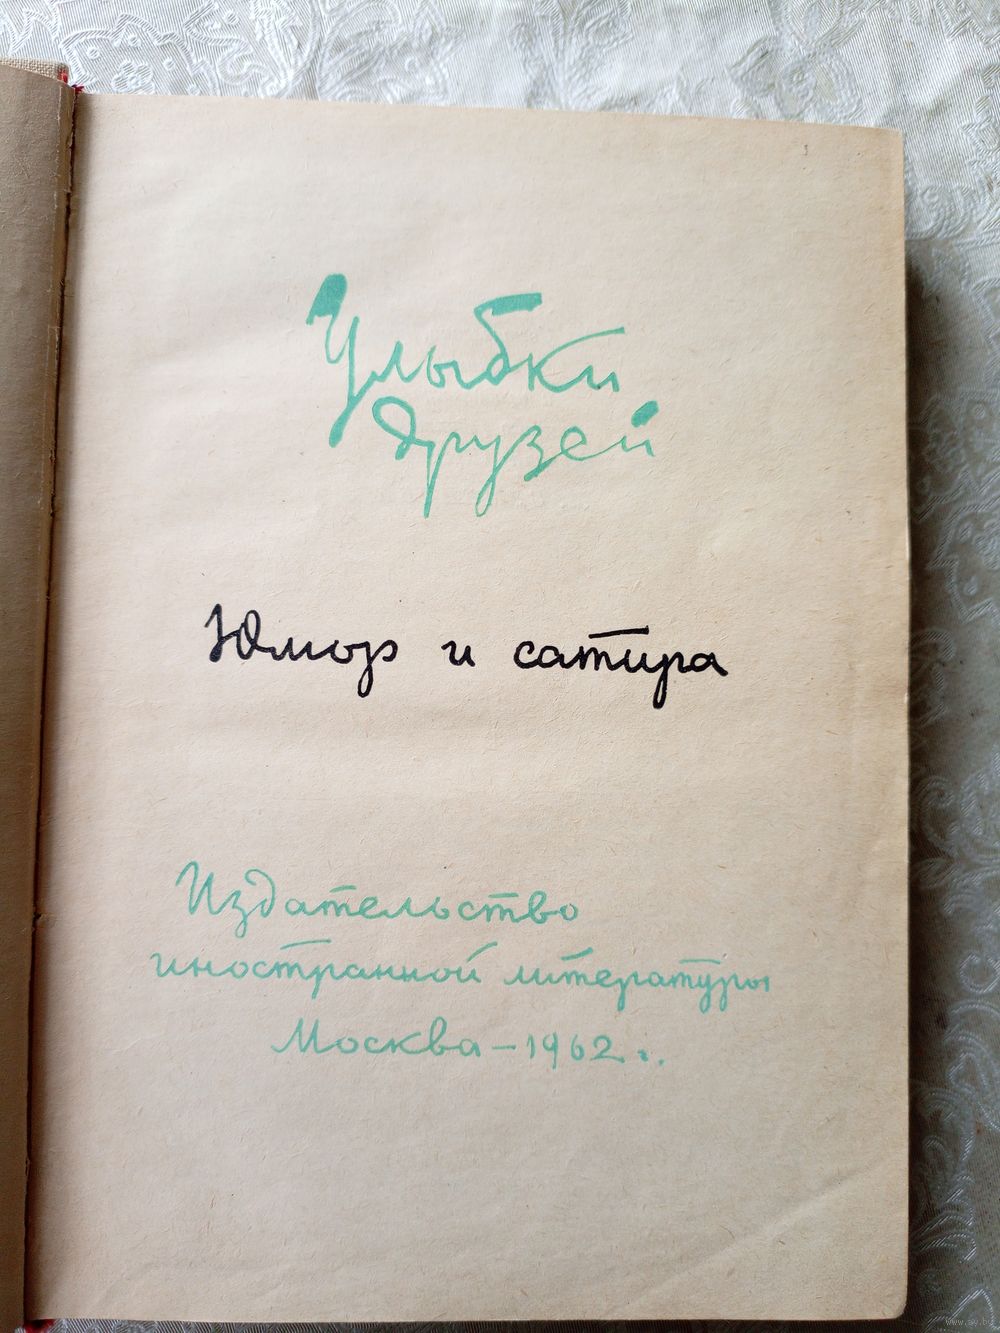 Улыбки
друзей
Юмор и сатира
Издательство
иностранной литературы
Москва – 1962 г.
www.ay.by